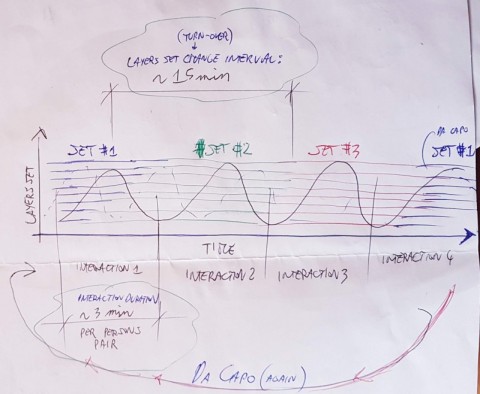 (TURN-OVER)
LAYERS SET CHANGE INTERVAL:
~ 15 min
SET #1
#SET #2
SET #3
DA CAPO
SET #1
LAYERS SET
TIME
INTERACTION 1
INTERACTION 2
INTERACTION 3
INTERACTION 4
INTERACTION DURATION
~ 3 min
PER PERSONS
PAIR
DA CAPO (AGAIN)